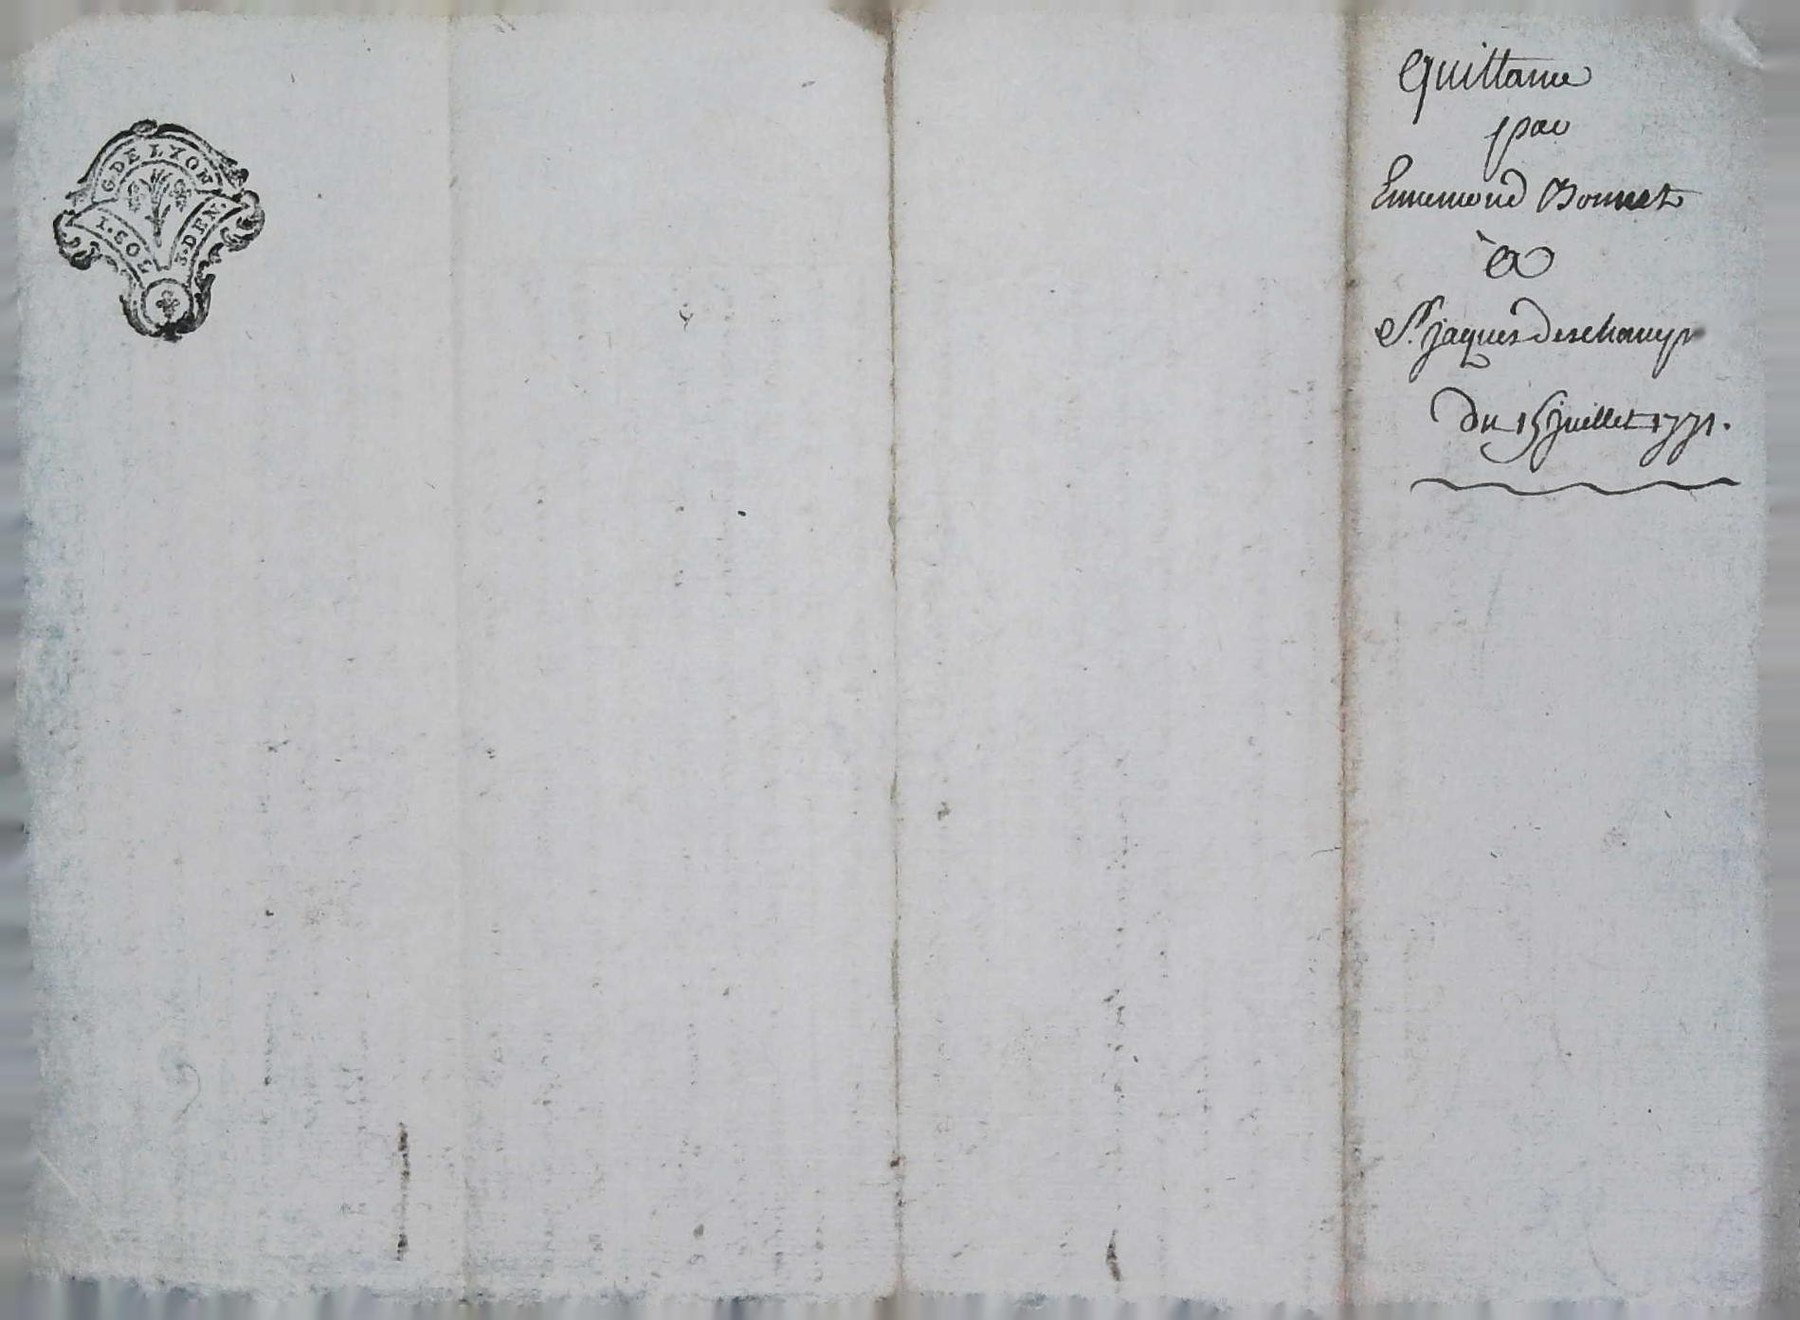 G. DE LYON
1. SOL
S. DEN.
Quittance
par
Ennemond Bonnet
à
Sr. jaques deschamps
du 15 juillet 1771.